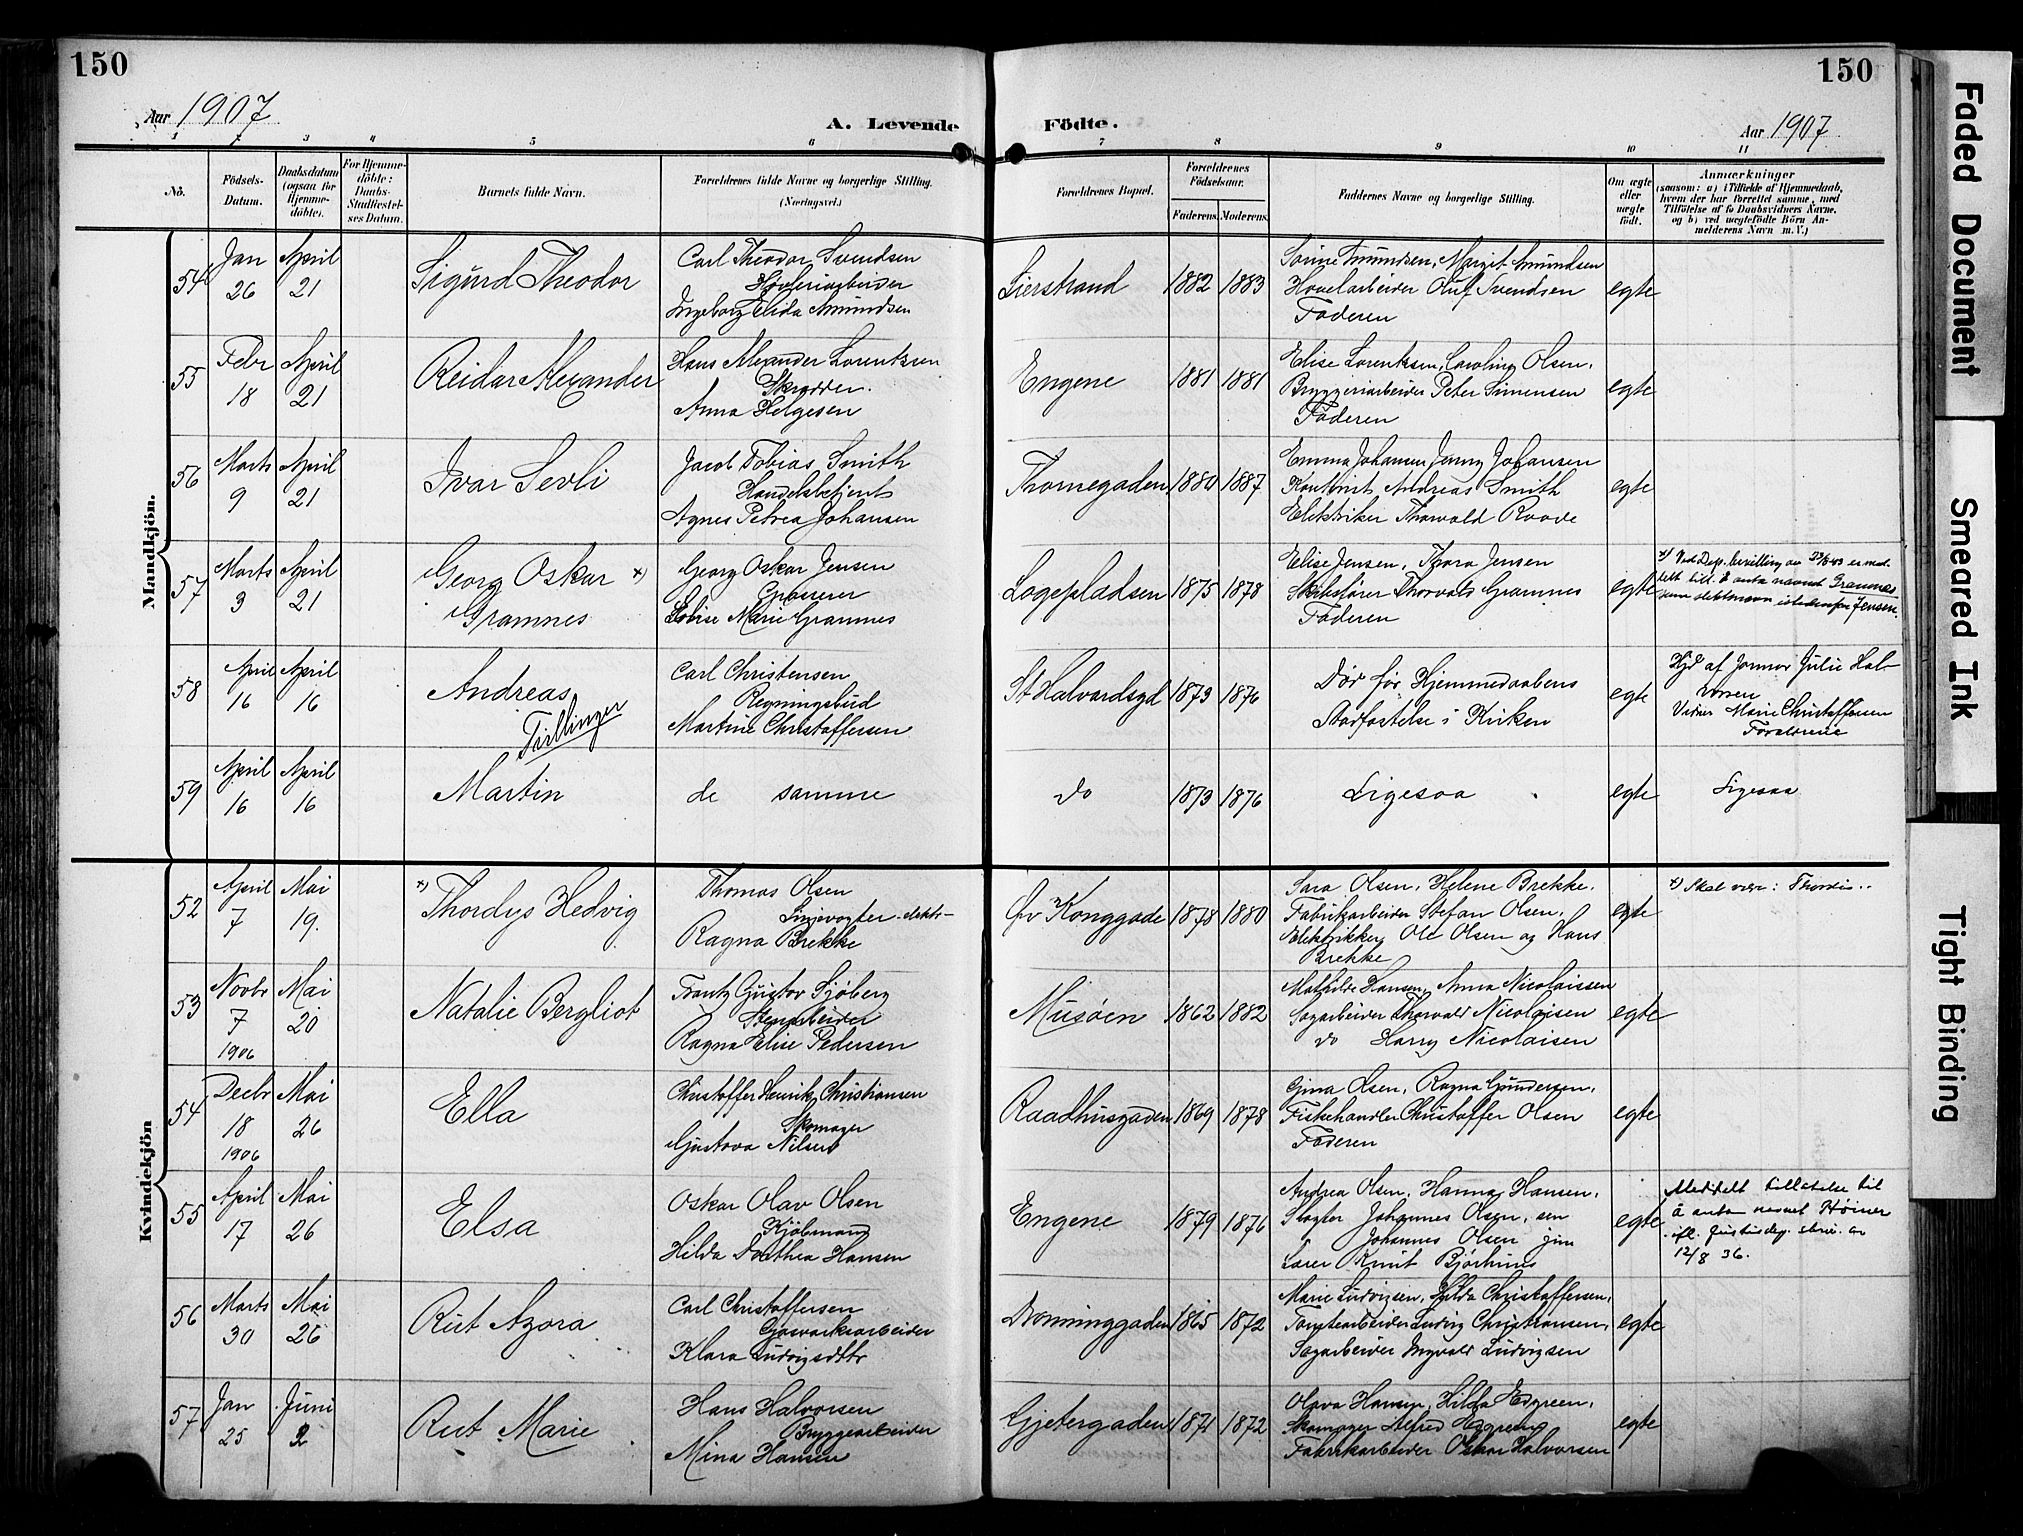 150
150
Aar 1907
A. Levende Födte.
Aar 1907.
1 2 3 4 5 6 7 8 9 10 11
No.
Födsels-Datum.
Daabsdatum (ogsaa for Hjemme-döbte).
For Hjemme-döbte: Daabs-Stadfæstel-ses Datum.
Barnets fulde Navn.
Forældrenes fulde Navne og borgerlige Stilling. (Næringsvei.)
Forældrenes Bopæl.
Forældrenes Födselsaar.
Faderens. Moderens.
Faddernes Navne og borgerlige Stilling.
Om ægte eller uægte født.
Anmærkninger
(saasom: a) i Tilfælde af Hjemmedaab, hvem der har forrettet samme, med Tilföielse af to Daabsvidners Navne, og b) ved uægtefödte Börn An-melderens Navn m. V.)
Mandkjön.
54 Jan 26 April 21 Sigurd Theodor
Carl Theodor Svendsen
Høvleriarbeider
Ingeborg Elida Amundsen
Lierstrand 1882 1883
Amundsen, Margit Amundsen
Høvelarbeider Oluf Svendsen
Faderen
egte
55 Febr 18 April 21 Reidar Alexander
Hans Alexander Lorentzen
Skrædder.
Anna Helgesen
Engene 1881 1881
Elise Lorentzen, Caroline Olsen,
Bryggeriarbeider Peter Simensen
Faderen
egte
56 Marts 9 April 21 Ivar Sevli
Jacob Tobias Smith
Handelsbetjent
Agnes Petrea Johansen
Thornegaden 1880 1887
Emma Johansen Jenny Johansen
Kontorist Andreas Smith
Elektriker Thorvald Roode
egte
57 Marts 3 April 21 Georg Oskar x)
Gramnes
Georg Oskar Jensen
Graverer
Lovise Marie Gramnes
Logepladsen 1875 1878
Elise Jensen, Thora Jensen
Skibsfører Thorvald Gramnes
Faderen
egte
x) Ved Dep. bevilling av er med-
delt till. å anta navnet Gramnes
som slektsnavn istedenfor Jensen.
58 April 16 April 16 Andreas
Tvillinger
Carl Christensen
Regningsbud
Martine Christoffersen
St Halvardsgd 1873 1876
Dør før Hjemmedaabens
Stadfæstelse i Kirken
egte
Hjd af Jormor Julie Hal-
vorsen
Vidner Marie Christoffersen
Forældrene
59 April 16 April 16 Martin
de samme
do 1873 1876
Ligesaa
egte
Ligesaa
Kvindekjön
52 April 7 Mai 19. x) Thordys Hedvig
Thomas Olsen
Linjevogter
Ragna Brekke
Øv Konggade 1878 1880
Sara Olsen, Helene Brekke,
Fabrikarbeider Stefan Olsen,
Elektrikker Ole Olsen og Hans
Brekke
egte
x) Skal være: Thordis..
53 Novbr 7 1906 Mai 20 Natalie Bergliot
Frantz Gustav Sjøberg
Stenarbeider
Ragna Elise Pedersen
Musøen 1862 1882
Mathilde Hansen, Anna Nicolaissen
Sagarbeider Thorvald Nicolaisen
do Harry Nicolaisen
egte
54 Decbr 18 1906 Mai 26 Ella
Christoffer Henrik Christiansen
Skomager
Gustava Nilsen
Raadhusgaden 1869 1878
Gina Olsen, Ragna Gundersen,
Fiskehandler Christoffer Olsen
Faderen
egte
55 April 17 Mai 26 Elsa
Oskar Olav Olsen
Kjøbmand
Hilda Dorthea Hansen
Engene 1879 1876
Andrea Olsen, Hanna Hansen,
Slagter Johannes Olsen, sen
Johannes Olsen jun
Lærer Knut Bjørhuus
egte
Meddelt tillatelse til
å anta navnet Høiner
ifl. Justisdep. skriv. av
12/8 36.
56 Marts 30 Mai 26 Rut Azora
Carl Christoffersen
Gasværksarbeider
Klara Ludvigsdttr
Dronninggaden 1865 1872
Marie Ludvigsen, Hilda Christoffersen,
Tomtearbeider Ludvig Christiansen,
Sagarbeider Ingvald Ludvigsen
egte
57 Jan 25 Juni 2 Rut Marie
Hans Halvorsen
Bryggearbeider
Mina Hansen
Gjetergaden 1871 1872
Olava Hansen, Hilda Edgreen,
Skomager Alfred Edgreen
Fabrikarbeider Oskar Halvorsen
egte
Faded Document
Smeared Ink
Tight Binding